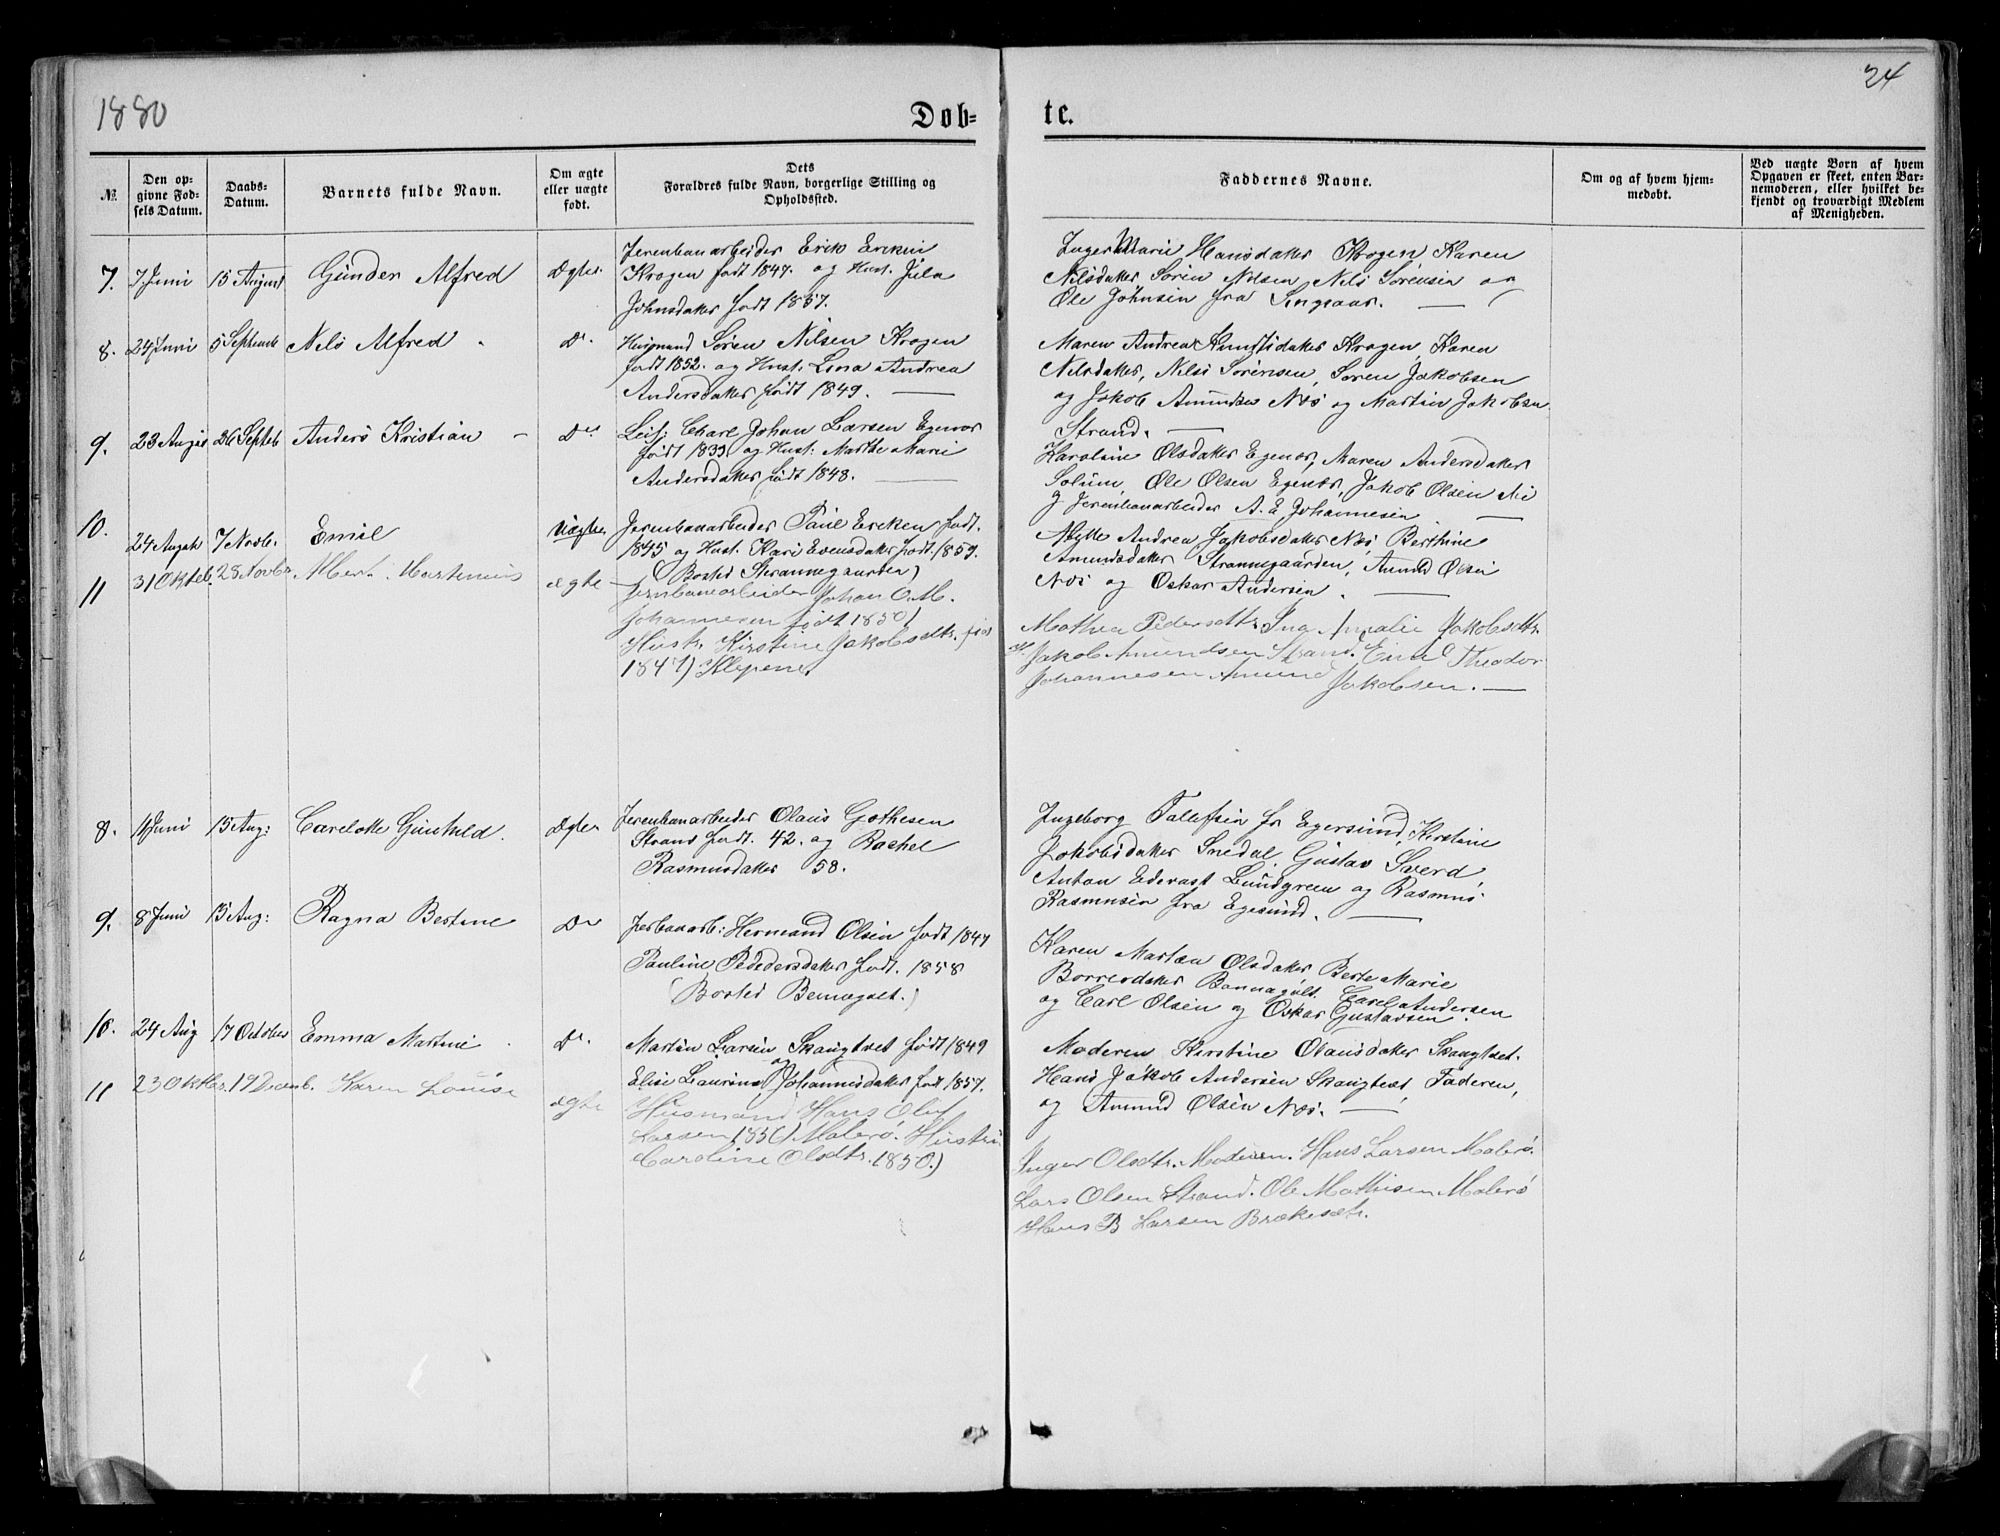 1880
Døb-
te.
24
№
Den op-
givne Fød-
sels Datum.
Daabs-
Datum.
Barnets fulde Navn.
Om ægte
eller uægte
født.
Dets
Forældres fulde Navn, borgerlige Stilling og
Opholdssted.
Faddernes Navne.
Om og af hvem hjem-
medøbt.
Ved uægte Børn af hvem
Opgaven er skeet, enten Bar-
nemoderen, eller hvilket be-
kjendt og troværdigt Medlem
af Menigheden.
7.
7 Juni
15 August
Gunder Alfred
Ægte
Jerenbanarbeider Erik
Krogen født 1847. og Hust. Jula
Johnsdater født 1857.
Inger Marie Hansdater Krogen Karen
Nilsdater Søren Nilsen Nils Sørensen og
Ole Johnsen fra
8.
24 Juni
5 September
Nils Alfred
Do.
Husmand Søren Nilsen Krogen
født 1852. og Hust. Lina Andrea
Andersdater født 1849.
Maren Andrea Knudsdater Krogen, Karen
Nilsdater, Nils Sørensen, Søren Jakobsen
og Jakob Amundsen Næs og Martin Jakobsen
Strand.
9.
23 August
26 Septeb
Anders Kristian
Do
Leif: Charl Johan Larsen Egenæs
født 1839. og Hust: Marthe Marie
Andersdater født 1848.
Karoline Olsdater Egenæs, Maren Andersdater
Solum, Ole Olsen Egenæs, Jakob Olsen
og Jerenbanarbeider A. E. Johannesen
10.
24 August
7 Novb.
Emil
Uægte
Jerenbanarbeider Paul Ericken født.
1845 og Hust. Kari Evensdater født. 1859.
(Bosted Strannegaarden)
Andrea Jakobsdater Næs, Berthine
Amundsdater Strannegaarden, Amund Olsen
Næs og Oskar Andersen.
11
31 Oktob.
28 Novbr.
Martinius
ægte
Jernbanearbeider Johan O. M.
Johannesen født 1850)
Hustr. Kirstine Jakobsdtr. fød
1847) Klepene.
Mathea Pedersdtr. Ina Amalie Jakobsdtr.
Jakob Amundsen Strand. Emil Theodor
Johannesen Amund Jakobsen.
8.
11 Juni
15 Aug:
Carelotte Gunhild.
Ægte
Jerenbanarbeider Olaus Gothesen
Strand født. 42. og Rachel
Rasmusdater 58.
Ingeborg Talefsen fr Egersund, Kirstine
Jakobsdater Snedal, Gustav Sverd
Anton Edevast Lundgreen og Rasmus
Rasmusen fra Egesund.
9.
8 Juni
15 Aug:
Ragna Bertine
Do
Jerbanarb: Hermand Olsen født 1847
Pauline Pededersdater født. 1858
(Bosted Bennegolt.)
Karen Martea Olsdater, Berte Marie
Borresdater Bonnegolt. Carel Andersen
og Carl Olsen og Oskar Gustavsen.
10.
24 Aug
17 October
Emma Martine
Do.
Martin Larsen Skaugtvet født 1849
og
Elise Laurine Johannisdater født 1857.
Moderen Kirstine Olausdater Skaugtvet.
Hans Jakob Andersen Skaugtvet, Faderen,
og Amund Olsen Næs.
11
23 Oktbr.
19 Decmb.
Karen Louise
ægte
Husmand Hans Oluf
Larsen 1850) Malerø. Hustru
Caroline Olsdtr. 1850.)
Inger Olsdtr. Moderen. Hans Larsen Malerø.
Lars Olsen Strand. Ole Mathisen Malerø
Hans B Larsen Brækesæt.